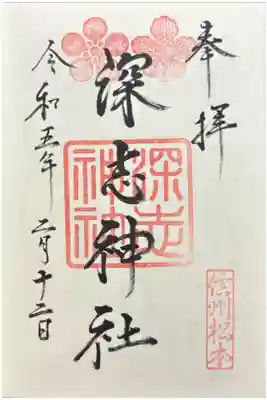 奉拝
信州松本
深志神社
深志神社
令和五年 二月十二日